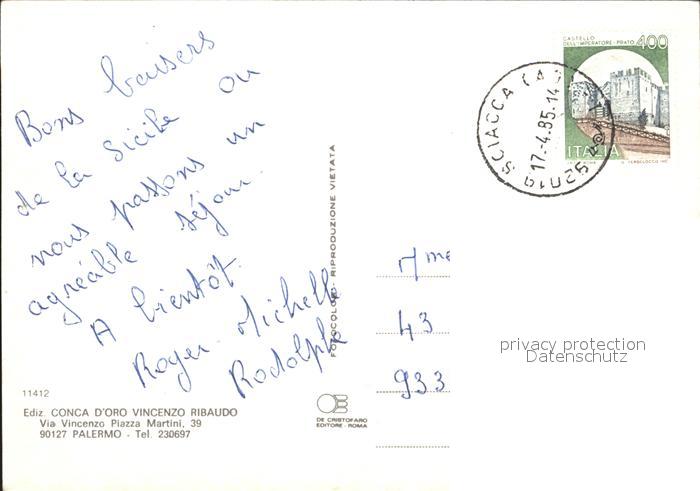 Bons baisers
de la Sicile ou
nous passons un
agréable séjour.
A bientôt.
Roger Michelle
Rodolphe
11412
Ediz. CONCA D'ORO VINCENZO RIBAUDO
Via Vincenzo Piazza Martini, 39
90127 PALERMO - Tel. 230697
FOTOCOLOR - RIPRODUZIONE VIETATA
DE CRISTOFARO
EDITORE - ROMA
CASTELLO
DELL'IMPERATORE - PRATO 400
ITALIA
SCIACCA (AG)
17.-4.85.14
92019
Mme
43
933
privacy protection
Datenschutz